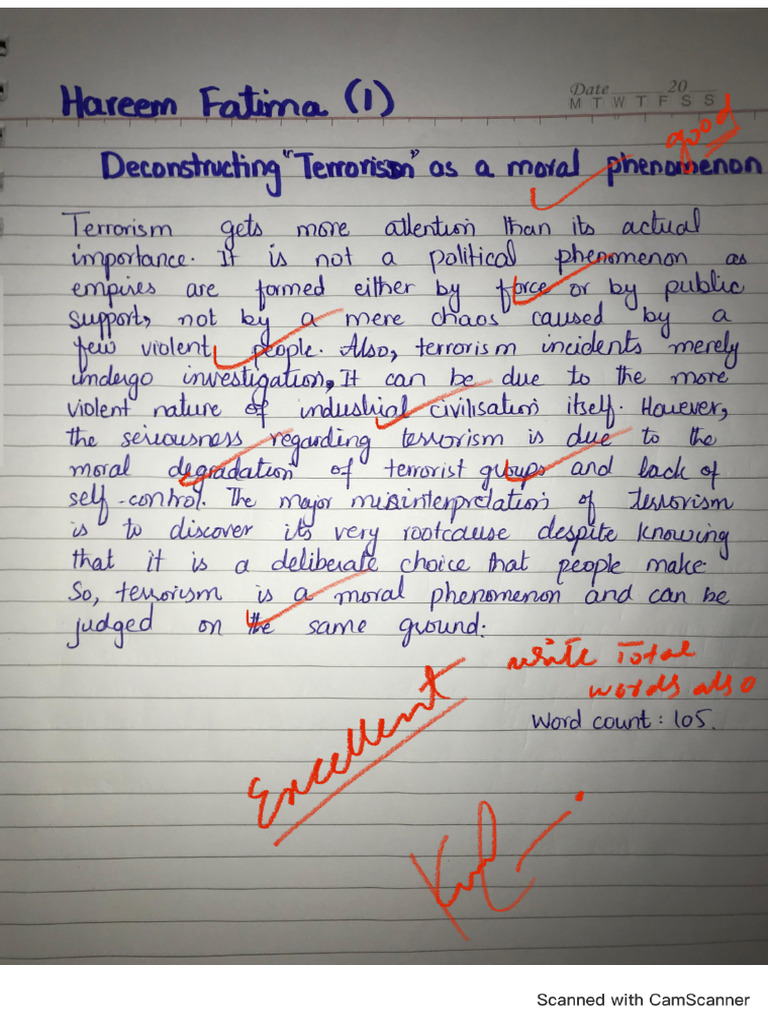 Hareem Fatima (1)
Date 20
M T W T F S S
good
Deconstructing "Terrorism" as a moral phenomenon
Terrorism gets more attention than its actual
importance. It is not a political phenomenon as
empires are formed either by force or by public
support, not by a mere chaos caused by a
few violent people. Also, terrorism incidents merely
undergo investigation, It can be due to the more
violent nature of industrial civilisation itself. However,
the seriousness regarding terrorism is due to the
moral degradation of terrorist groups and lack of
self-control. The major misinterpretation of terrorism
is to discover its very rootcause despite knowing
that it is a deliberate choice that people make.
So, terrorism is a moral phenomenon and can be
judged on the same ground.
write Total
words also
Word count: 105.
Excellent
Scanned with CamScanner